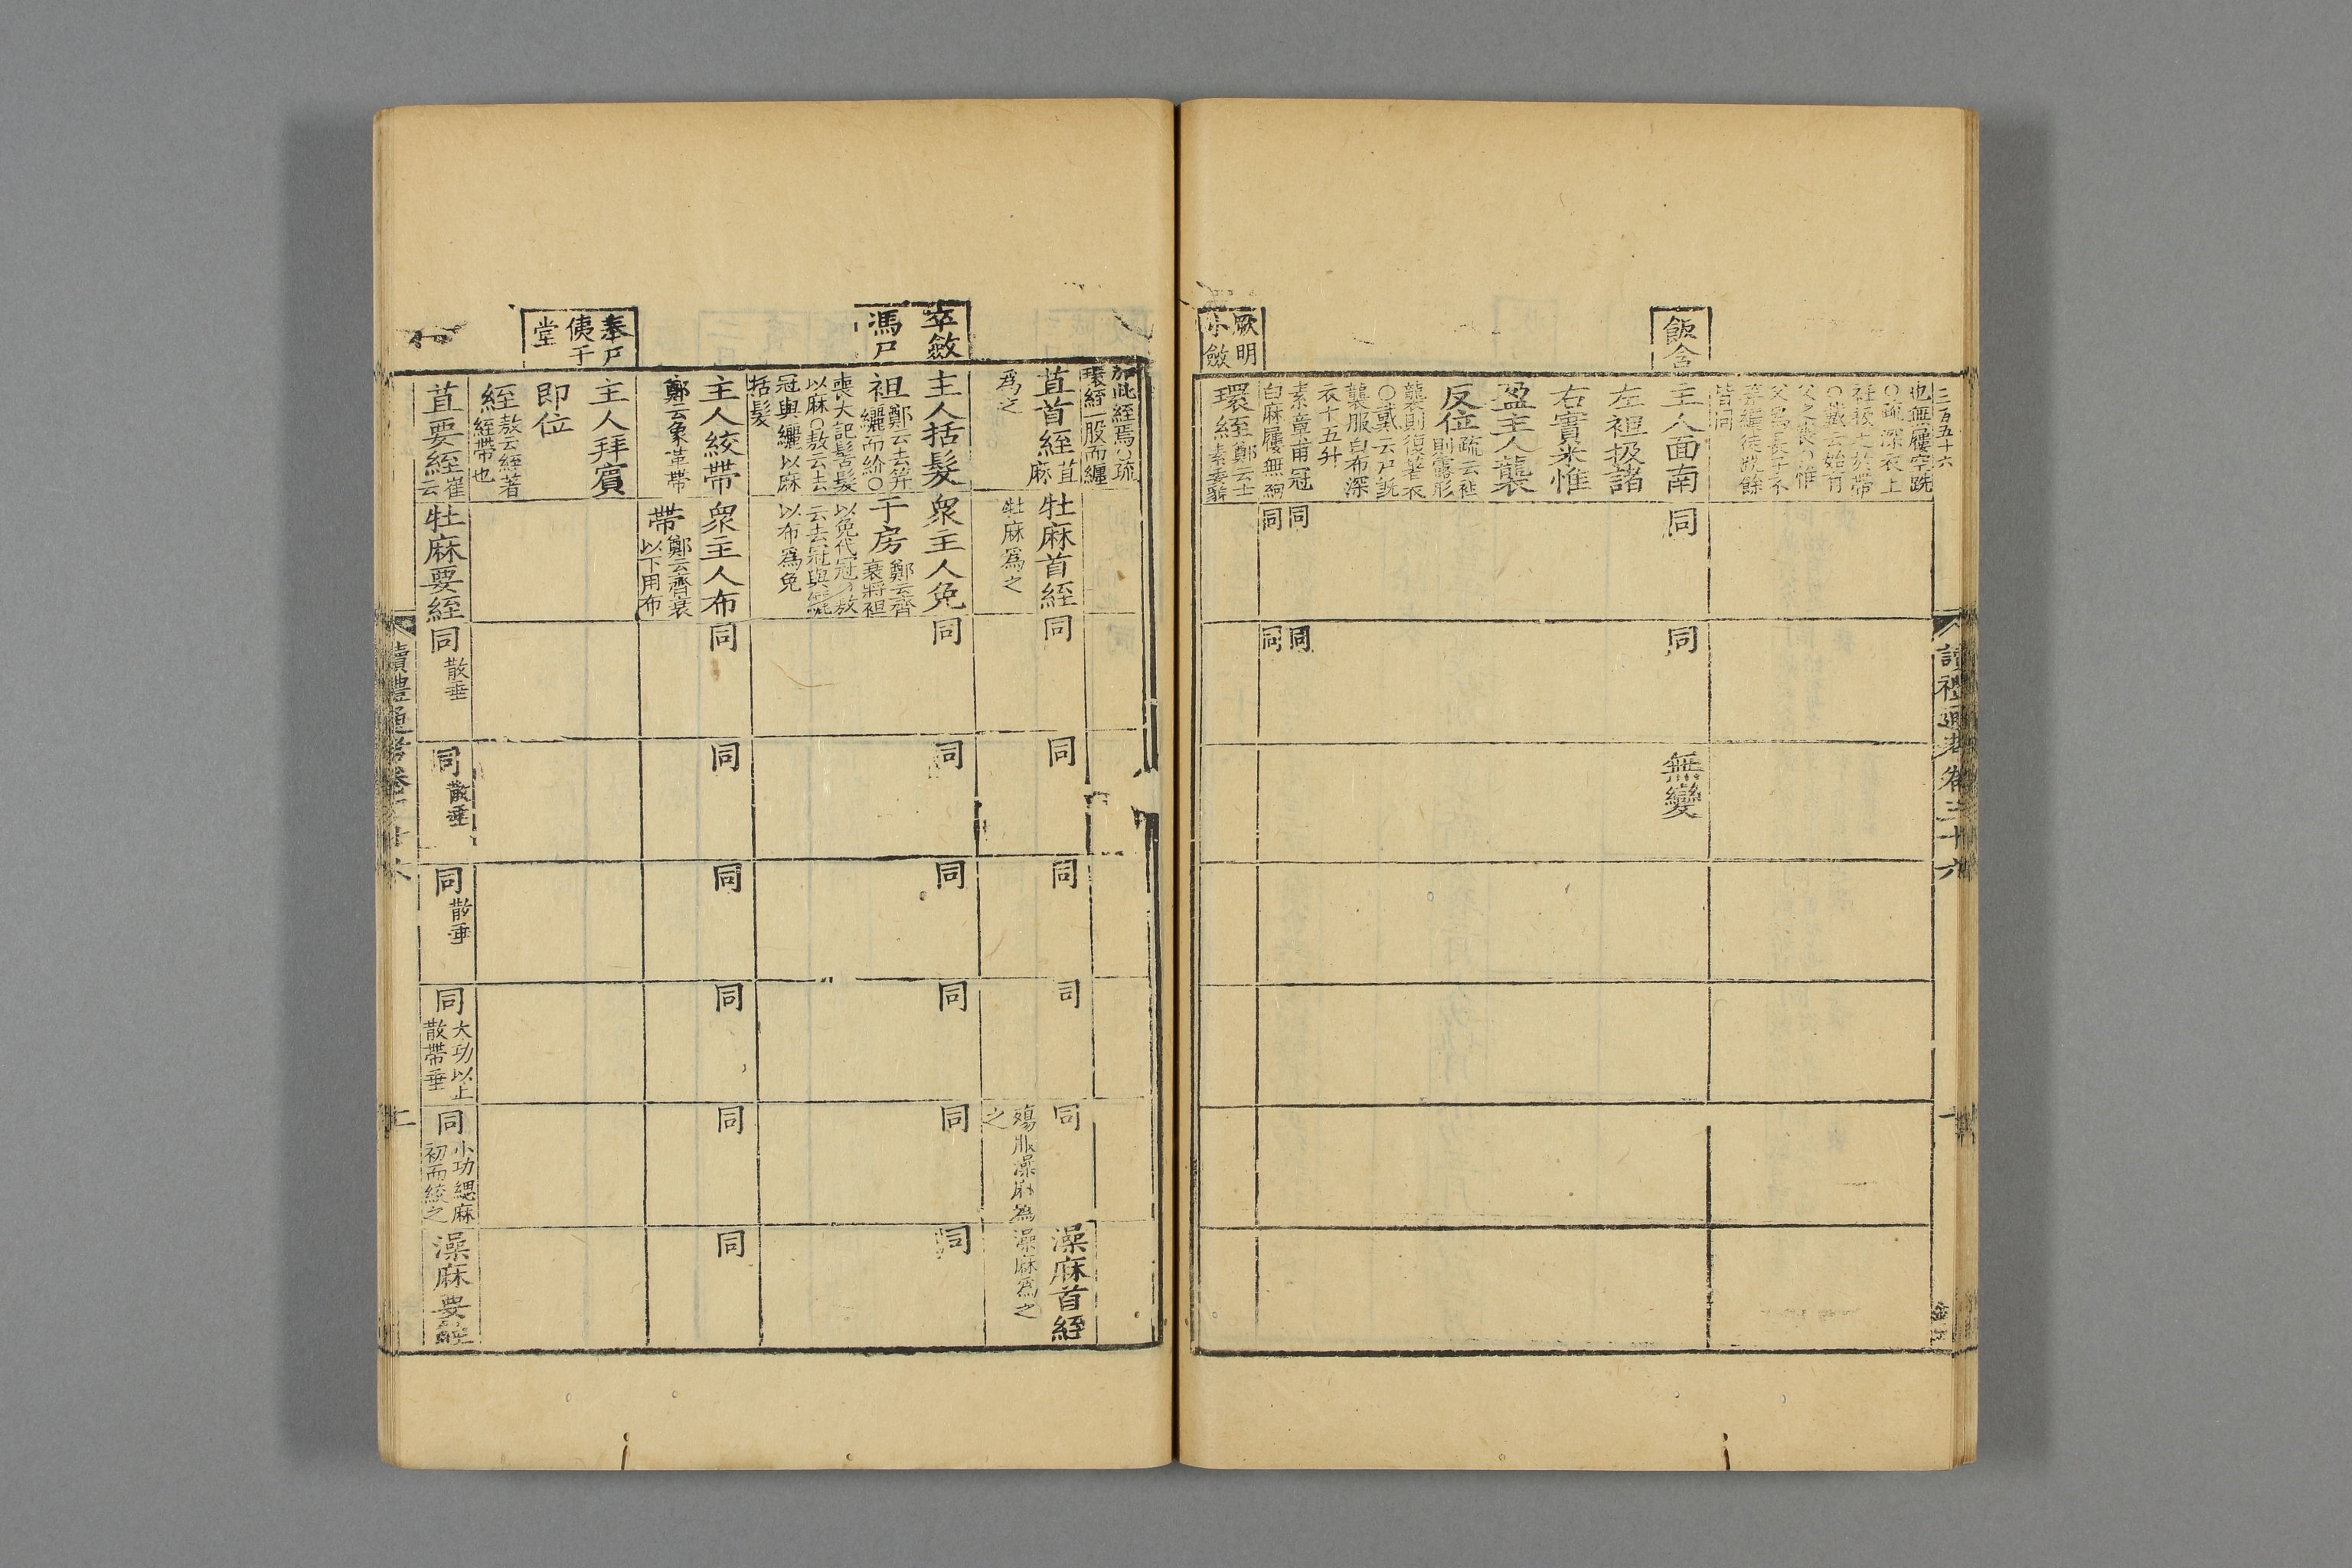 讀禮通考卷三十六
飯含
厥明
小斂
也無屨空跣
○疏深衣上
衽扱之於帶
○戴云始有
父之喪〇惟
父爲長子不
笄纚徒跣餘
皆同
主人面南
左袒扱諸
右實米惟
盈主人襲
反位
疏云袒
則露形
襲則復著衣
○戴云尸旣
襲服白布深
衣十五升
素章甫冠
白麻屨無絇
環絰
鄭云士
素委貌
同
同
同
同
同
同
無變
加此絰焉○疏
環絰一股而纏
卒斂
馮尸
奉尸
侇于
堂
苴首絰
苴麻
爲之
主人括髮
袒
鄭云去笄
纚而紒○
喪大記髺髮
以麻○敖云去
冠與纚以麻
括髮
主人絞帶
鄭云象革帶
主人拜賓
即位
絰
敖云絰著
絰帶也
苴要絰
崔云
牡麻首絰
牡麻爲之
衆主人免
于房
鄭云齊
衰將袒
以免代冠○敖
云去冠與纚
以布爲免
衆主人布
帶
鄭云齊衰
以下用布
牡麻要絰
同
同
同
同
散垂
同
同
同
同
散垂
同
同
同
同
散垂
同
同
同
同
大功以上
散帶垂
同
殤服澡麻爲
之
同
同
同
小功緦麻
初而絞之
澡麻首絰
澡麻爲之
同
同
澡麻要絰
讀禮通考卷